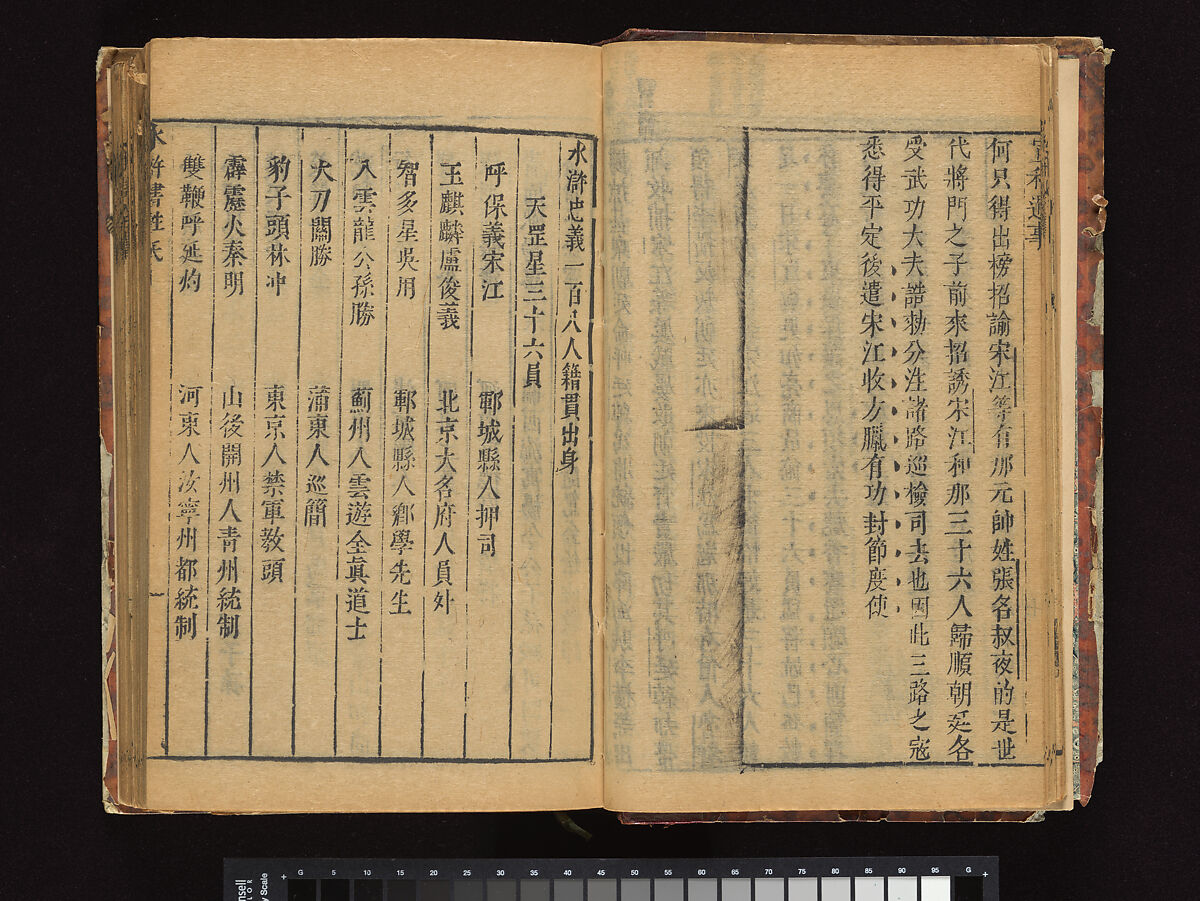 宣和遺事
何只得出榜招諭宋江等有那元帥姓張名叔夜的是世
代將門之子前來招誘宋江和那三十六人歸順朝廷各
受武功大夫誥勑分注諸路巡檢司去也因此三路之寇
悉得平定後遣宋江收方臘有功封節度使
水滸忠義一百八人籍貫出身
天罡星三十六員
呼保義宋江 鄆城縣人押司
玉麒麟盧俊義 北京大名府人員外
智多星吳用 鄆城縣人鄉學先生
入雲龍公孫勝 薊州人雲遊全眞道士
大刀關勝 蒲東人巡簡
豹子頭林冲 東京人禁軍教頭
霹靂火秦明 山後開州人青州統制
雙鞭呼延灼 河東人汝寧州都統制
水滸書姓氏
一
G 5 10 15 20 25 30 35 40 45 50 55 60 65 70 75 80 85 90 95 G